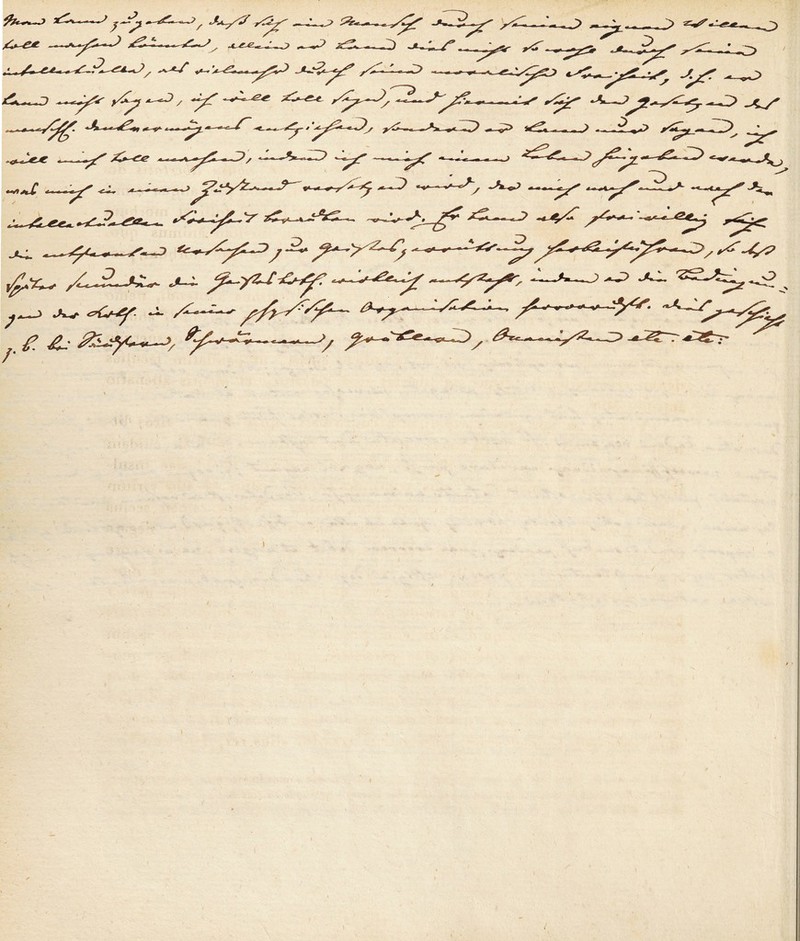 Man kann zugeben, daß sich ein Mensch durch seinen eignen Willen
toll machen könnte, allein er kann dies nicht sowohl durch seine
intellectuelle, als vielmehr durch seine moralische Freiheit, d. h. er
kann nicht sagen, ich will toll seyn, und hiermit sich den Gesetzen des
menschl. Denkvermögens entziehen, sondern er kann nur sagen, ich
will mich toll machen, indem ich mich einem Leben hingeben werde,
was mich in einen Zustand versetzen wird, der mich nach und nach der
intellectuellen Freiheit berauben wird. Er kann also freiwillig sich
die entfernten Ursachen zur Geisteszerrüttung herbeiführen, so daß
später secundär die Geisteskrkh. wirklich entsteht, indem er die Bedingun-
gen der Krkh. in seiner physischen Organisation hervorruft. Dies geschieht
z. B. bei Säufern, Schwärmern, Grüblern, Onanisten etc. etc: